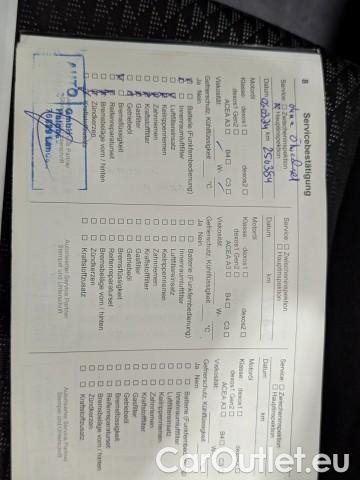 8
Servicebestätigung
Service: Zwischeninspektion
Hauptinspektion
Datum km 250384
Motoröl
Klasse: dexos1 dexos2
dexos1 Gen2
ACEA A3 B4 C3
Viskosität: W-
Gefrierschutz, Kühlflüssigkeit °C
Ja Nein
Batterie (Funkfernbedienung)
Innenraumluftfilter
Luftfiltereinsatz
Keilrippenriemen
Zahnriemen
Kraftstofffilter
Gasfilter
Getriebeöl
Bremsflüssigkeit
Reifenreparaturset
Bremsbeläge vorn / hinten
Zündkerzen
AUTO
Service: Zwischeninspektion
Hauptinspektion
Datum km
Motoröl
Klasse: dexos1 dexos2
dexos1 Gen2
ACEA A3 B4 C3
Viskosität: W-
Gefrierschutz, Kühlflüssigkeit °C
Ja Nein
Batterie (Funkfernbedienung)
Innenraumluftfilter
Luftfiltereinsatz
Keilrippenriemen
Zahnriemen
Kraftstofffilter
Gasfilter
Getriebeöl
Bremsflüssigkeit
Reifenreparaturset
Bremsbeläge vorn / hinten
Zündkerzen
Kraftstoffzusatz
Autorisierter Service Partner
Stempel und Unterschrift
Service: Zwischeninspektion
Hauptinspektion
Datum km
Motoröl
Klasse: dexos1
dexos1 Gen2
ACEA A3
Viskosität: W-
Gefrierschutz, Kühlflüssigkeit
Ja Nein
Batterie (Funkfernbedienung)
Innenraumluftfilter
Luftfiltereinsatz
Keilrippenriemen
Zahnriemen
Kraftstofffilter
Gasfilter
Getriebeöl
Bremsflüssigkeit
Reifenreparaturset
Bremsbeläge vorn / hinten
Zündkerzen
Kraftstoffzusatz
Autorisierter Service Partner
Stempel und Unterschrift
CarOutlet.eu